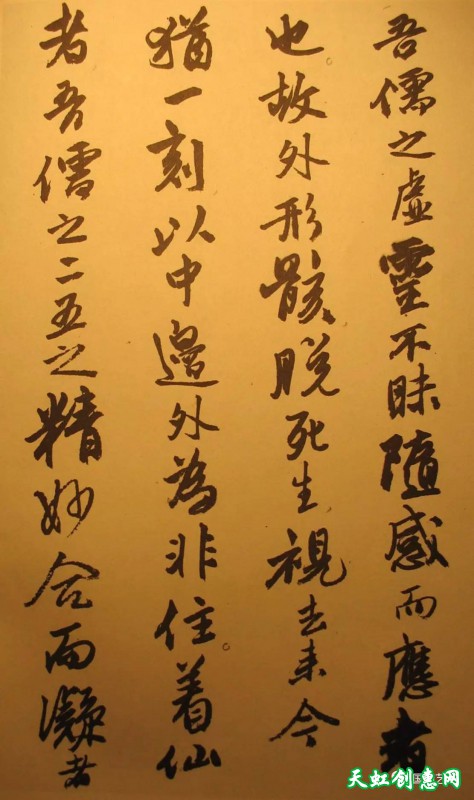 吾儒之虚靈不昧隨感而應者
也故外形骸脱死生視去来今
猶一刻以中邊外為非住着仙
者吾儒之二五之精妙合而凝者
国 艺
天虹创意网